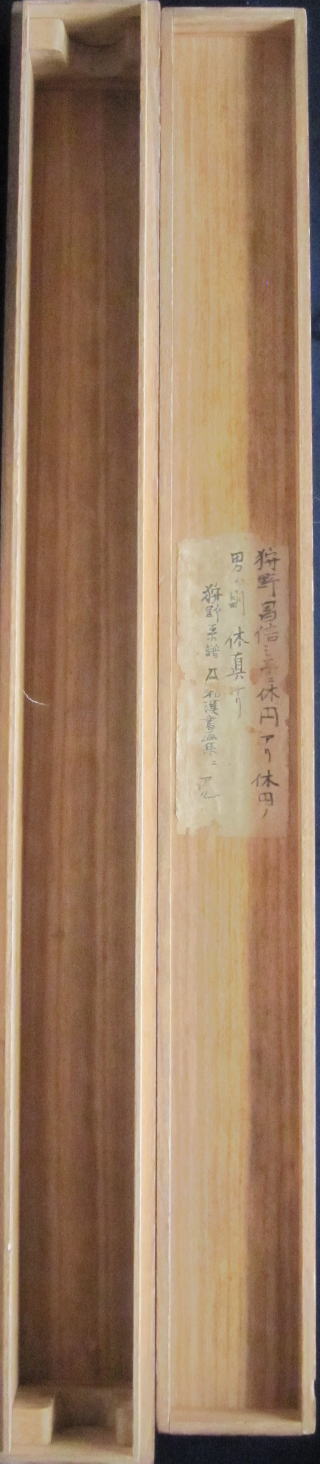 狩野昌信ニ子ニ休円アリ休円ノ
男ハ則休真ナリ
狩野系譜及和漢書画集ニアリ